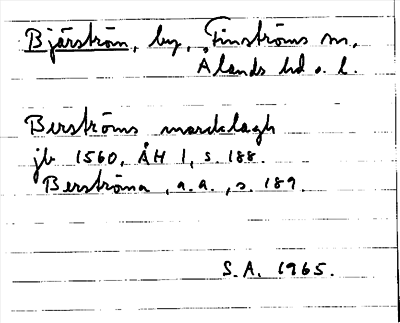 Bjärström, by, Finströms sn,
Ålands hd o. l.
Berströms marcklagh
jb 1560, ÅH 1, s. 188.
Berströma, a.a., s. 189.
S.A. 1965.